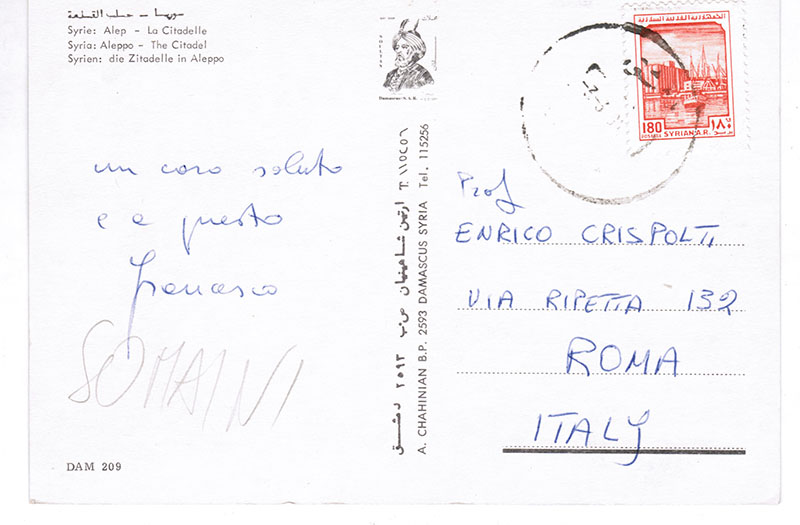 سوريا - حلب القلعة
Syrie: Alep - La Citadelle
Syria: Aleppo - The Citadel
Syrien: die Zitadelle in Aleppo
un caro saluto
e a presto
francesco
SOMAINI
DAM 209
ارتين شاهينيان ص.ب ٢٥٩٣ دمشق T. ١١٥٢٥٦
A. CHAHINIAN B.P. 2593 DAMASCUS SYRIA Tel. 115256
الجمهورية العربية السورية
180 POSTAGE SYRIAN A.R. ١٨٠
Prof
ENRICO CRISPOLTI
VIA RIPETTA 132
ROMA
ITALY